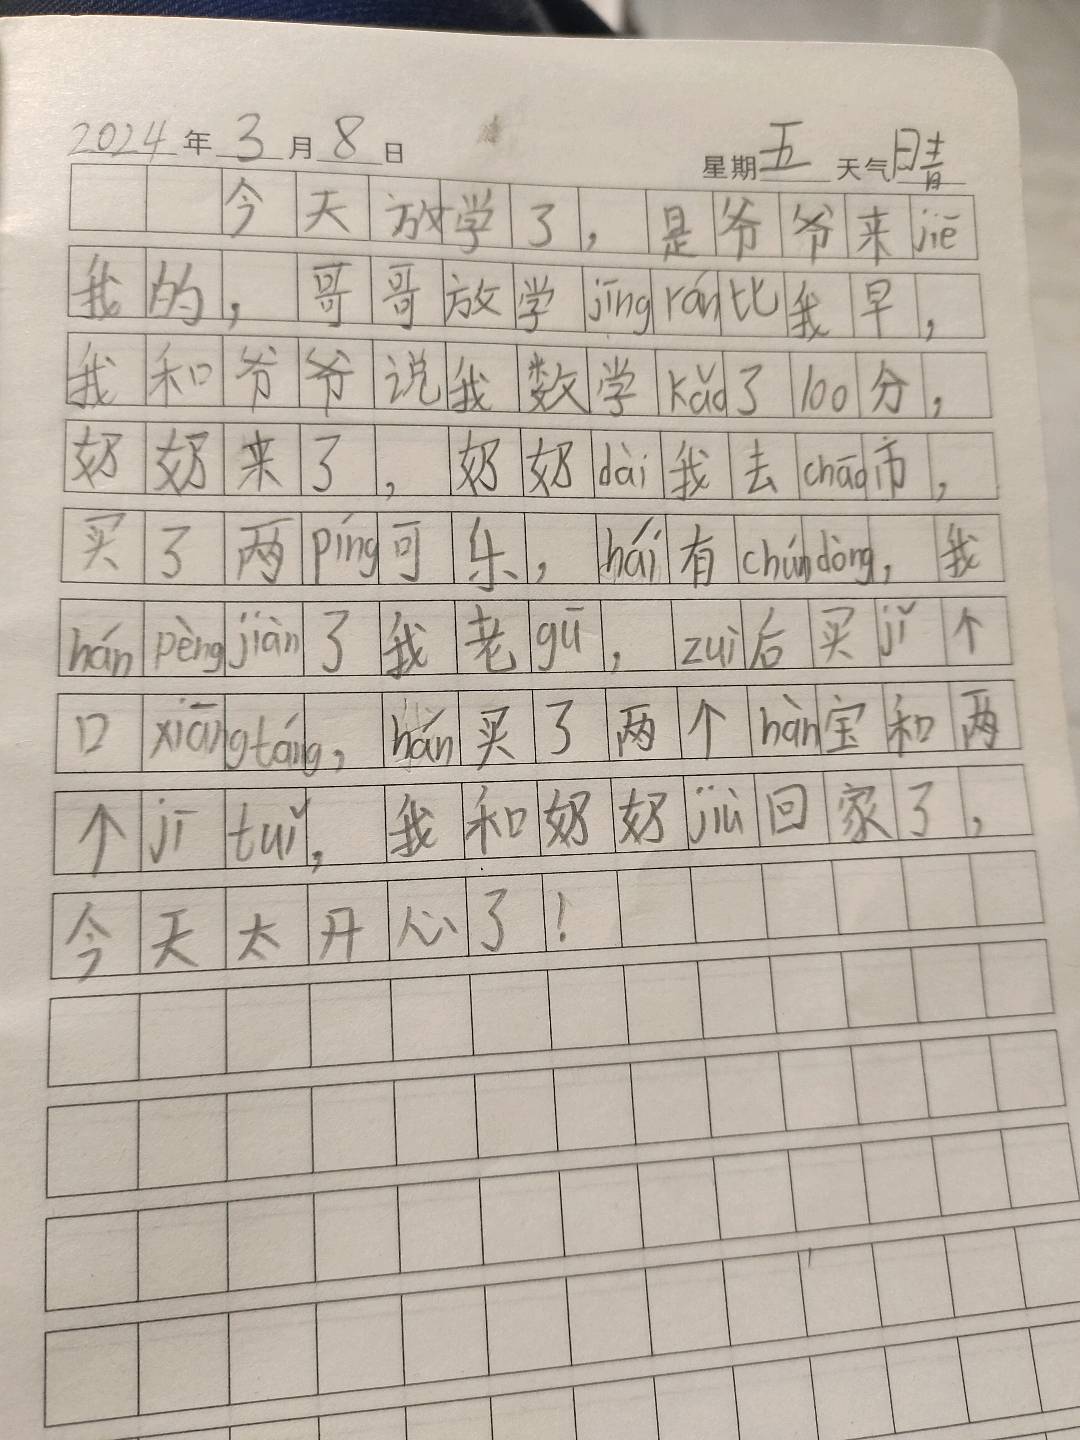 2024年3月8日 星期五 天气晴
今天放学了，是爷爷来jiē
我的，哥哥放学jīng rán比我早，
我和爷爷说我数学kǎo了100分，
奶奶来了，奶奶dài我去chāo市，
买了两píng可乐，hái有chúndòng，我
hán pèng jiàn了我老gū，zuì后买jǐ个
口xiāngtáng，hán买了两个hàn宝和两
个jī tuǐ，我和奶奶jiù回家了，
今天太开心了！